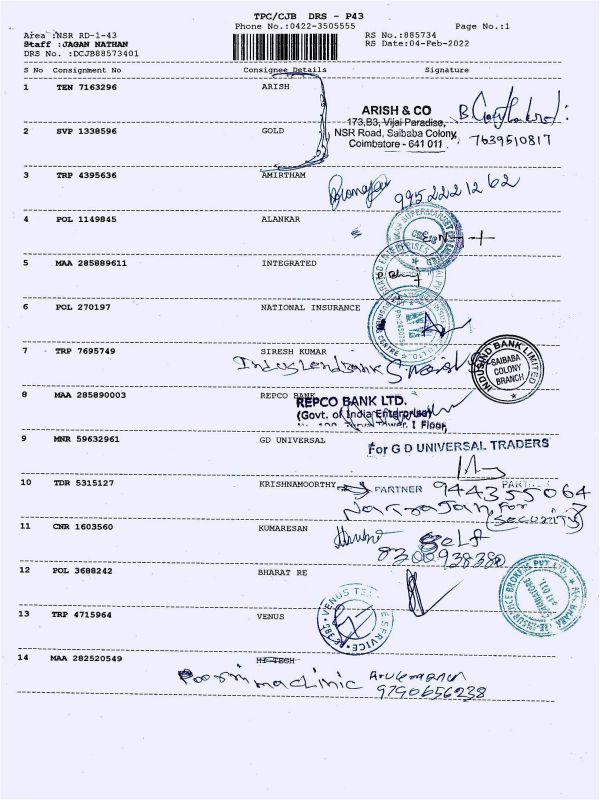 TPC/CJB DRS - P43
Phone No.:0422-3505555 Page No.:1
Area :NSR RD-1-43 RS No.:885734
Staff : JAGAN NATHAN RS Date:04-Feb-2022
DRS No. :DCJB88573401
S No Consignment No Consignee Details Signature
1 TEN 7163296 ARISH
ARISH & CO
173,B3, Vijai Paradise,
2 SVP 1338596 GOLD NSR Road, Saibaba Colony, 7639510817
Coimbatore - 641 011
3 TRP 4395636 AMIRTHAM
9952221262
4 POL 1149845 ALANKAR
5 MAA 285889611 INTEGRATED
6 POL 270197 NATIONAL INSURANCE
7 TRP 7695749 SIRESH KUMAR
INDUSIND BANK LIMITED
SAIBABA
COLONY
BRANCH
8 MAA 285890003 REPCO BANK
REPCO BANK LTD.
(Govt. of India Enterprise)
I Floor,
9 MNR 59632961 GD UNIVERSAL
For G D UNIVERSAL TRADERS
10 TDR 5315127 KRISHNAMOORTHY PARTNER 944355064
(Security)
11 CNR 1603560 KUMARESAN Self
8300938380
12 POL 3688242 BHARAT RE
13 TRP 4715964 VENUS
14 MAA 282520549 HI-TECH
9790656238